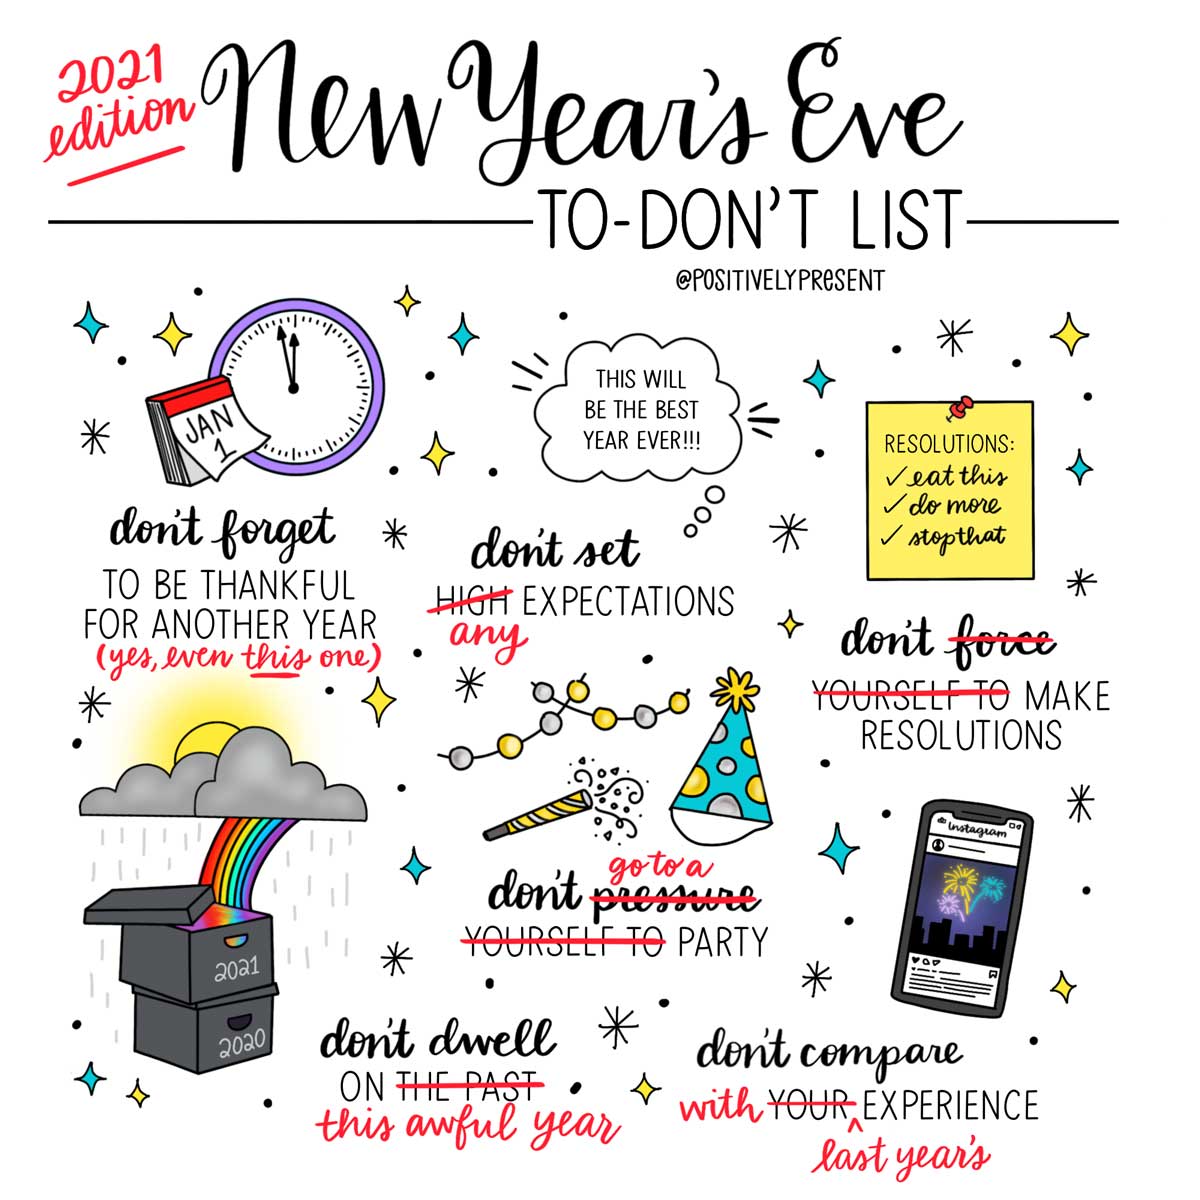 2021
edition
New Year's Eve
TO-DON'T LIST
@POSITIVELYPRESENT
JAN
1
don't forget
TO BE THANKFUL
FOR ANOTHER YEAR
(yes, even this one)
THIS WILL
BE THE BEST
YEAR EVER!!!
don't set
HIGH EXPECTATIONS
any
RESOLUTIONS:
✓ eat this
✓ do more
✓ stop that
don't force
YOURSELF TO MAKE
RESOLUTIONS
go to a
don't pressure
YOURSELF TO PARTY
2021
2020
don't dwell
ON THE PAST
this awful year
Instagram
don't compare
with YOUR EXPERIENCE
last year's